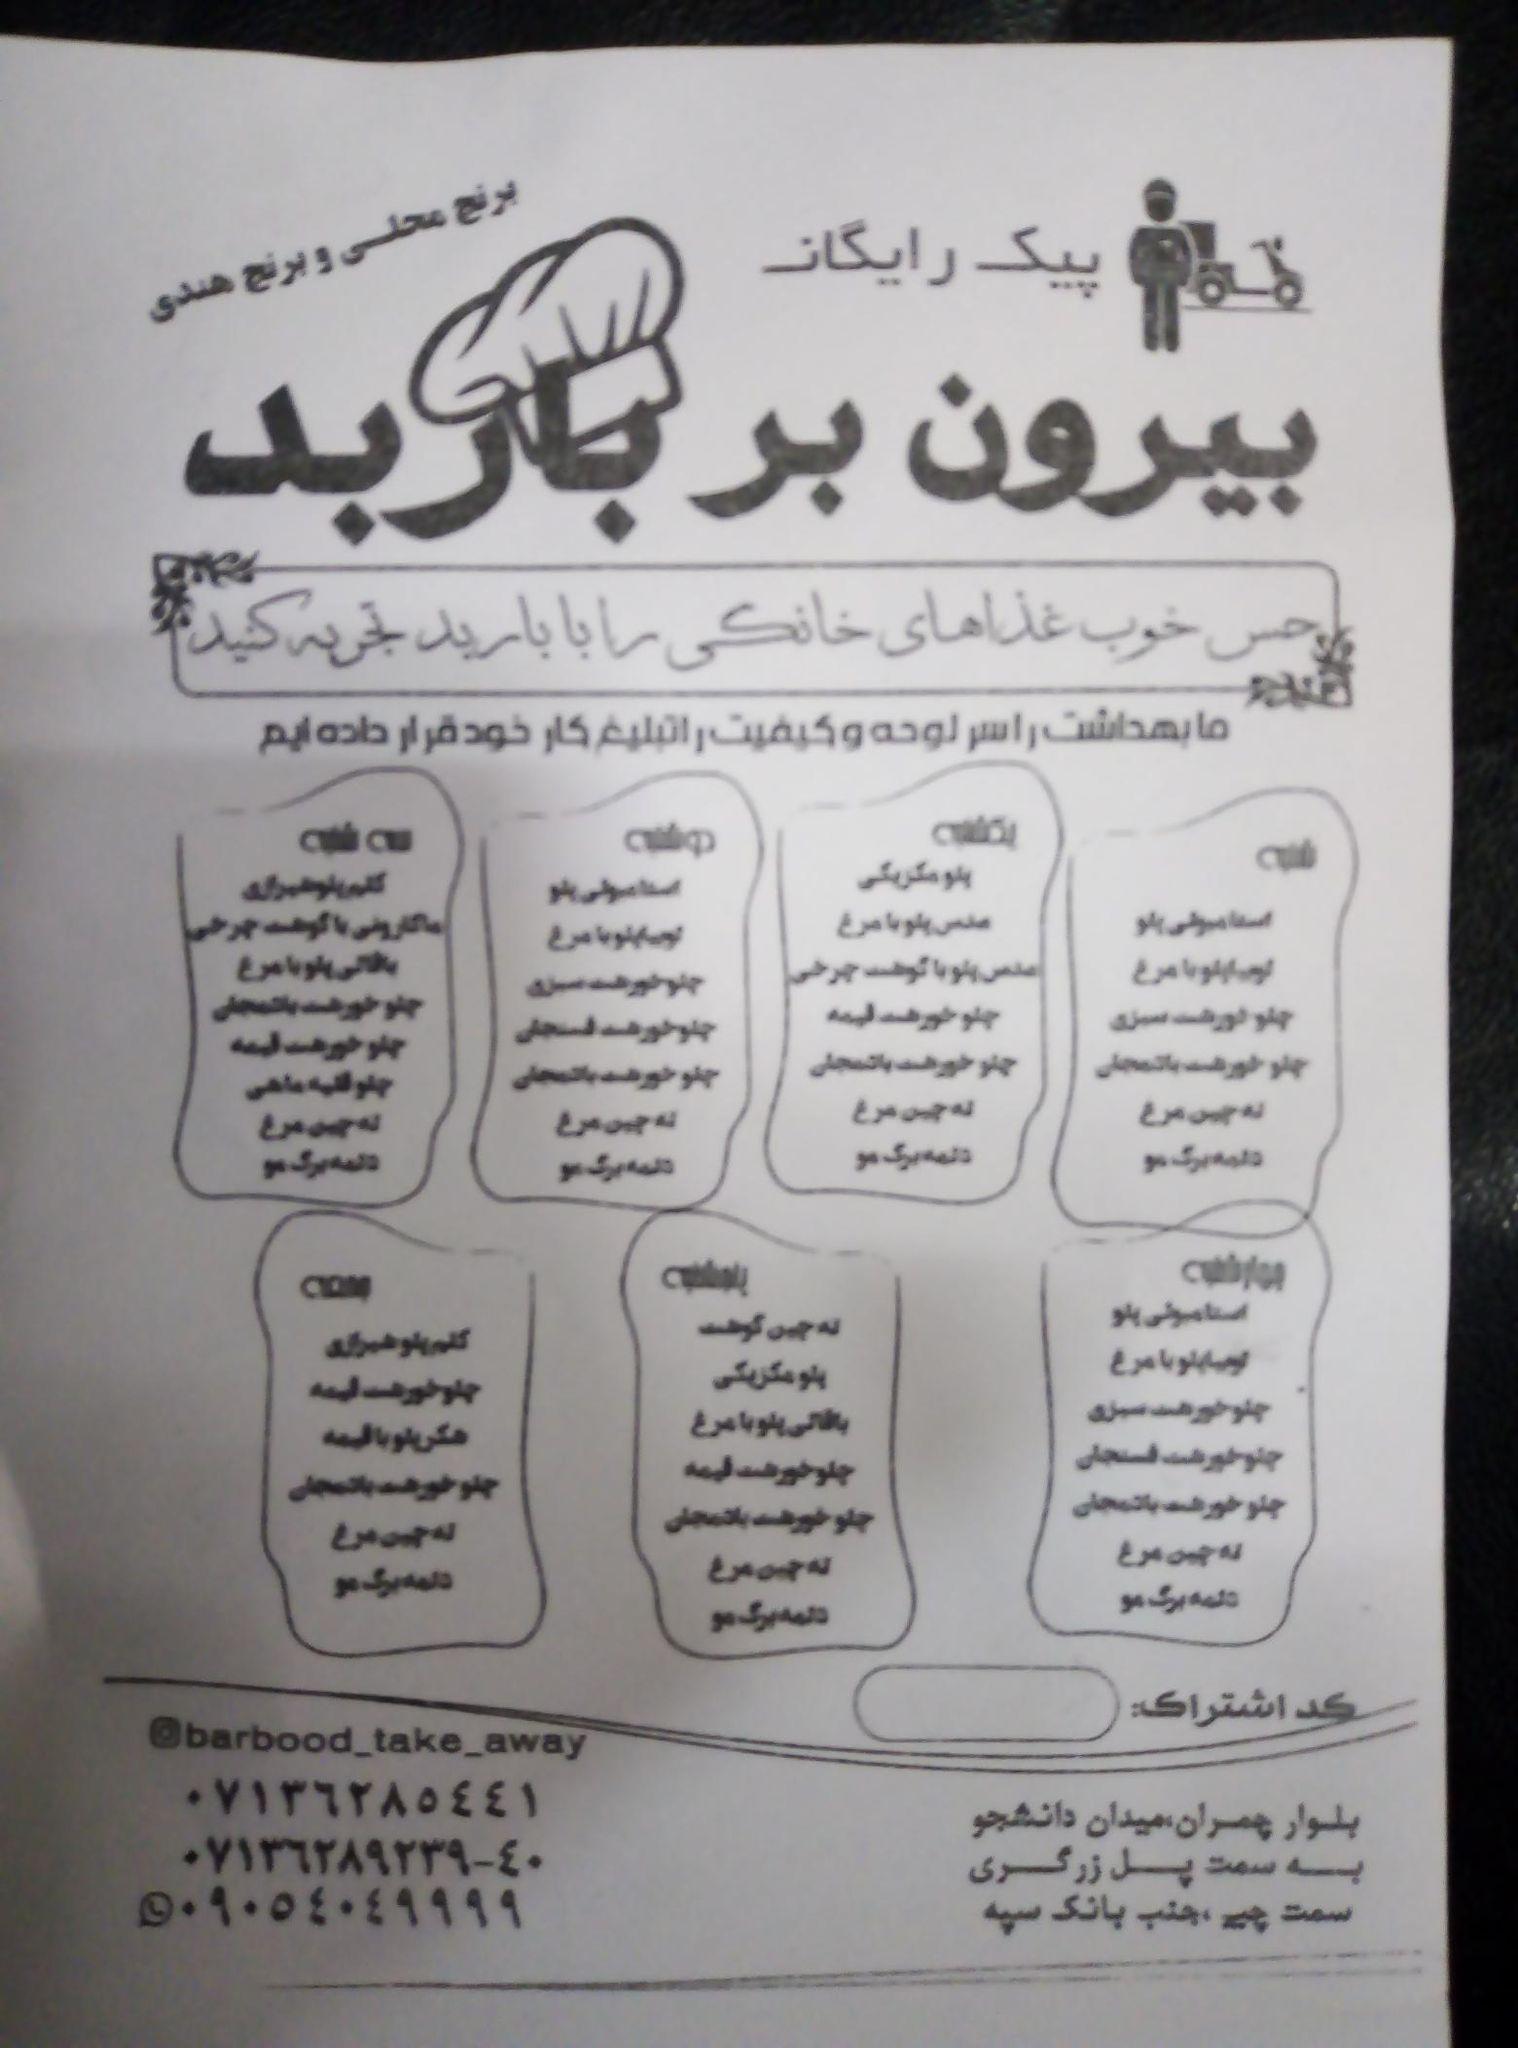 پیک رایگان
برنج محلی و برنج هندی
بیرون بر باربد
حس خوب غذاهای خانگی را با باربد تجربه کنید
ما بهداشت را سر لوحه و کیفیت را تبلیغ کار خود قرار داده ایم
شنبه
استامبولی پلو
لوبیا پلو با مرغ
چلو خورشت سبزی
چلو خورشت بادمجان
ته چین مرغ
دلمه برگ مو
یکشنبه
پلو مکزیکی
عدس پلو با مرغ
عدس پلو با گوشت چرخی
چلو خورشت قیمه
چلو خورشت بادمجان
ته چین مرغ
دلمه برگ مو
دوشنبه
استامبولی پلو
لوبیا پلو با مرغ
چلو خورشت سبزی
چلو خورشت فسنجان
چلو خورشت بادمجان
ته چین مرغ
دلمه برگ مو
سه شنبه
کلم پلو شیرازی
ماکارونی با گوشت چرخی
باقالی پلو با مرغ
چلو خورشت بادمجان
چلو خورشت قیمه
چلو قلیه ماهی
ته چین مرغ
دلمه برگ مو
چهارشنبه
استامبولی پلو
لوبیا پلو با مرغ
چلو خورشت سبزی
چلو خورشت فسنجان
چلو خورشت بادمجان
ته چین مرغ
دلمه برگ مو
پنجشنبه
ته چین گوشت
پلو مکزیکی
باقالی پلو با مرغ
چلو خورشت قیمه
چلو خورشت بادمجان
ته چین مرغ
دلمه برگ مو
جمعه
کلم پلو شیرازی
چلو خورشت قیمه
شکر پلو با قیمه
چلو خورشت بادمجان
ته چین مرغ
دلمه برگ مو
کد اشتراک:
@barbood_take_away
۰۷۱۳٦۲۸۵٤٤۱
۰۷۱۳٦۲۸۹۲۳۹-٤۰
۰۹۰۵٤۰٤۹۹۹۹
بلوار چمران،میدان دانشجو
به سمت پل زرگری
سمت چپ ،جنب بانک سپه